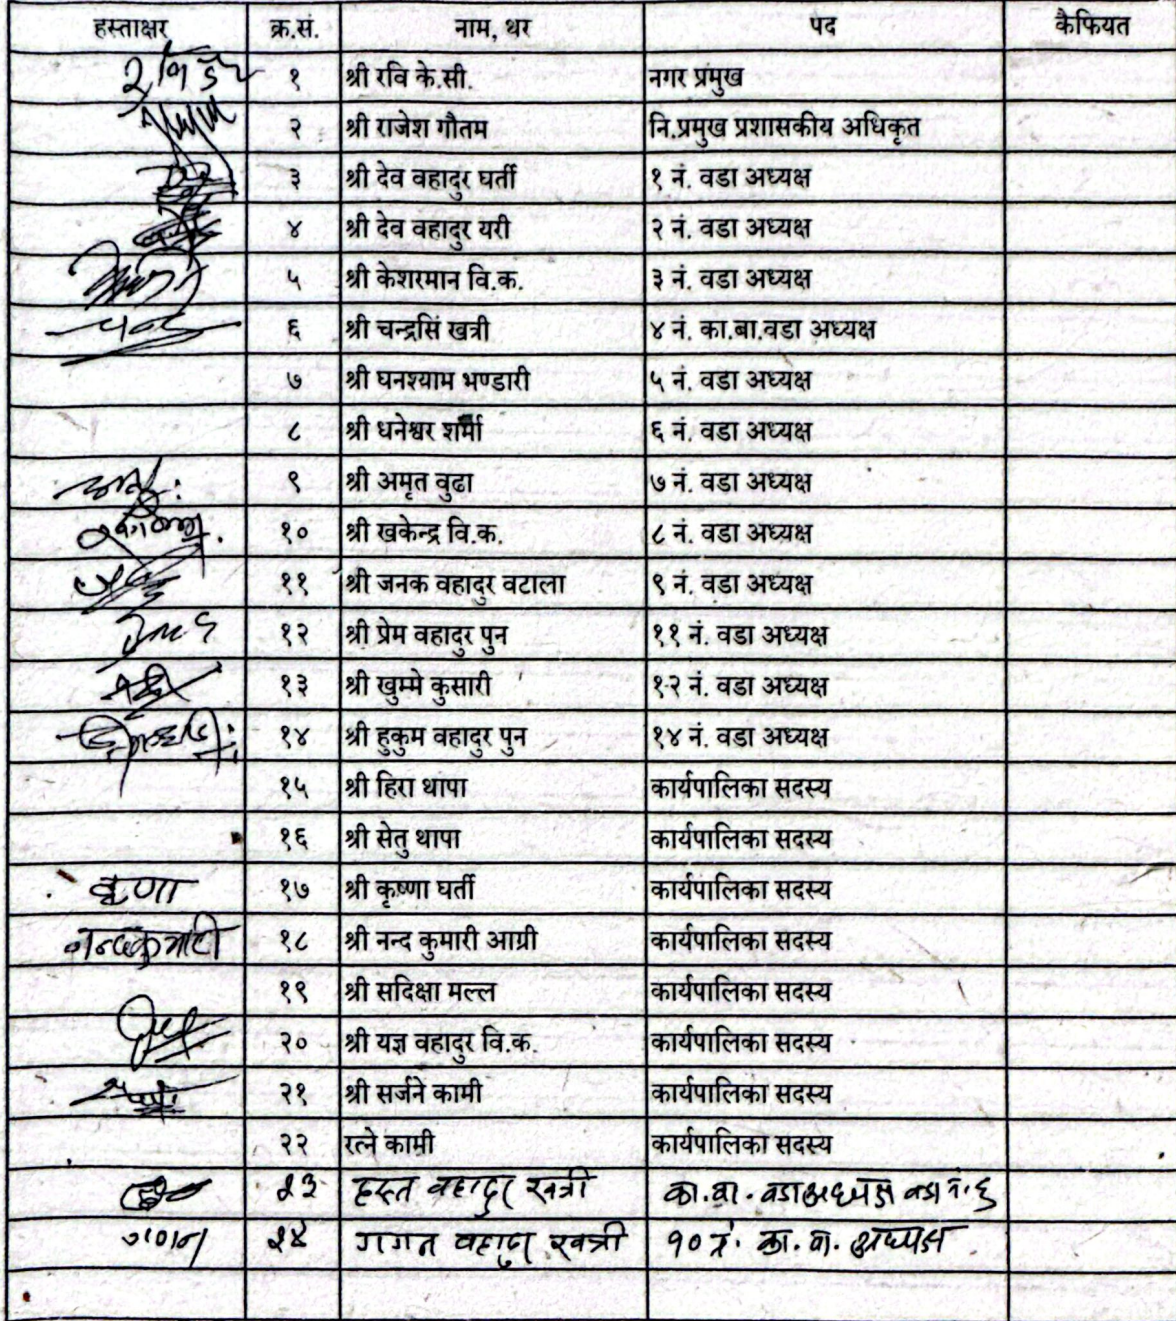 हस्ताक्षर क्र.सं. नाम, थर पद कैफियत
१ श्री रवि के.सी. नगर प्रमुख
२ श्री राजेश गौतम नि.प्रमुख प्रशासकीय अधिकृत
३ श्री देव वहादुर घर्ती १ नं. वडा अध्यक्ष
४ श्री देव वहादुर यरी २ नं. वडा अध्यक्ष
५ श्री केशरमान वि.क. ३ नं. वडा अध्यक्ष
६ श्री चन्द्रसिं खत्री ४ नं. का.बा.वडा अध्यक्ष
७ श्री घनश्याम भण्डारी ५ नं. वडा अध्यक्ष
८ श्री धनेश्वर शर्मा ६ नं. वडा अध्यक्ष
९ श्री अमृत वुढा ७ नं. वडा अध्यक्ष
१० श्री खकेन्द्र वि.क. ८ नं. वडा अध्यक्ष
११ श्री जनक वहादुर वटाला ९ नं. वडा अध्यक्ष
१२ श्री प्रेम वहादुर पुन ११ नं. वडा अध्यक्ष
१३ श्री खुम्मे कुसारी १२ नं. वडा अध्यक्ष
१४ श्री हुकुम वहादुर पुन १४ नं. वडा अध्यक्ष
१५ श्री हिरा थापा कार्यपालिका सदस्य
१६ श्री सेतु थापा कार्यपालिका सदस्य
कृष्णा १७ श्री कृष्णा घर्ती कार्यपालिका सदस्य
नन्दकुमारी १८ श्री नन्द कुमारी आग्री कार्यपालिका सदस्य
१९ श्री सदिक्षा मल्ल कार्यपालिका सदस्य
२० श्री यज्ञ वहादुर वि.क. कार्यपालिका सदस्य
२१ श्री सर्जने कामी कार्यपालिका सदस्य
२२ रत्ने कामी कार्यपालिका सदस्य
२३ हस्त बहादुर खत्री का.वा. वडा अध्यक्ष वडा नं. ६
गगन २४ गगन बहादुर खत्री १० नं. का. वा. अध्यक्ष